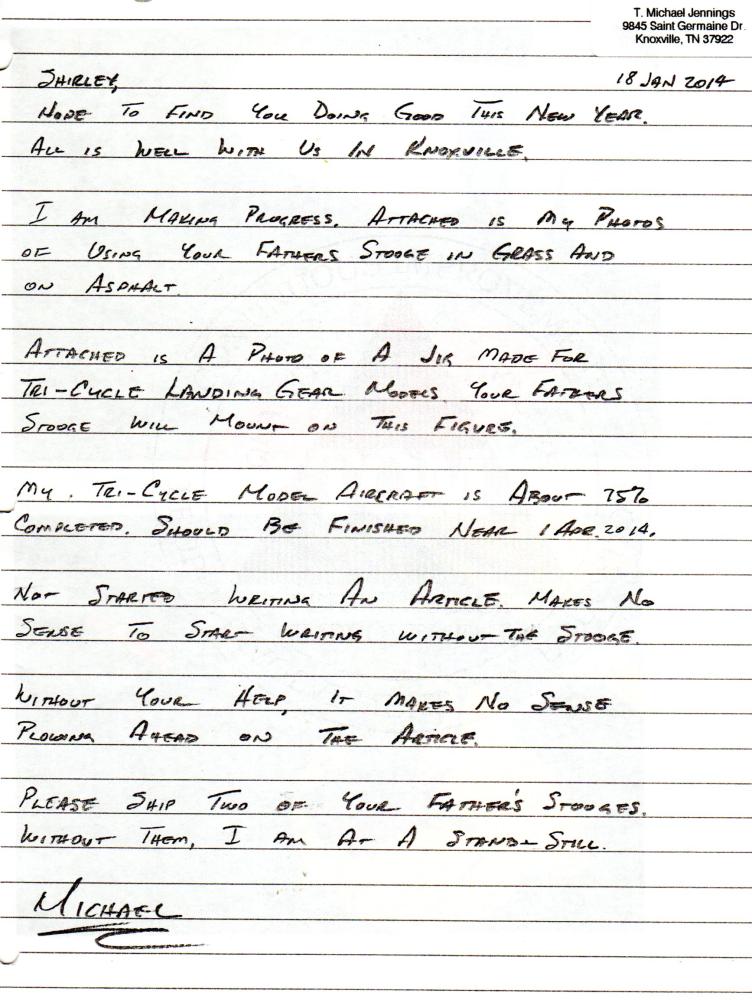 T. Michael Jennings
9845 Saint Germaine Dr.
Knoxville, TN 37922
SHIRLEY,
18 JAN 2014
HOPE TO FIND YOU DOING GOOD THIS NEW YEAR.
ALL IS WELL WITH US IN KNOXVILLE.
I AM MAKING PROGRESS. ATTACHED IS MY PHOTOS
OF USING YOUR FATHERS STOOGE IN GRASS AND
ON ASPHALT.
ATTACHED IS A PHOTO OF A JIG MADE FOR
TRI-CYCLE LANDING GEAR MODELS YOUR FATHERS
STOOGE WILL MOUNT ON THIS FIGURE.
MY TRI-CYCLE MODEL AIRCRAFT IS ABOUT 75%
COMPLETED. SHOULD BE FINISHED NEAR 1 APR. 2014.
NOT STARTED WRITING AN ARTICLE. MAKES NO
SENSE TO START WRITING WITHOUT THE STOOGE.
WITHOUT YOUR HELP, IT MAKES NO SENSE
PLOWING AHEAD ON THE ARTICLE.
PLEASE SHIP TWO OF YOUR FATHER'S STOOGES.
WITHOUT THEM, I AM AT A STAND-STILL.
MICHAEL